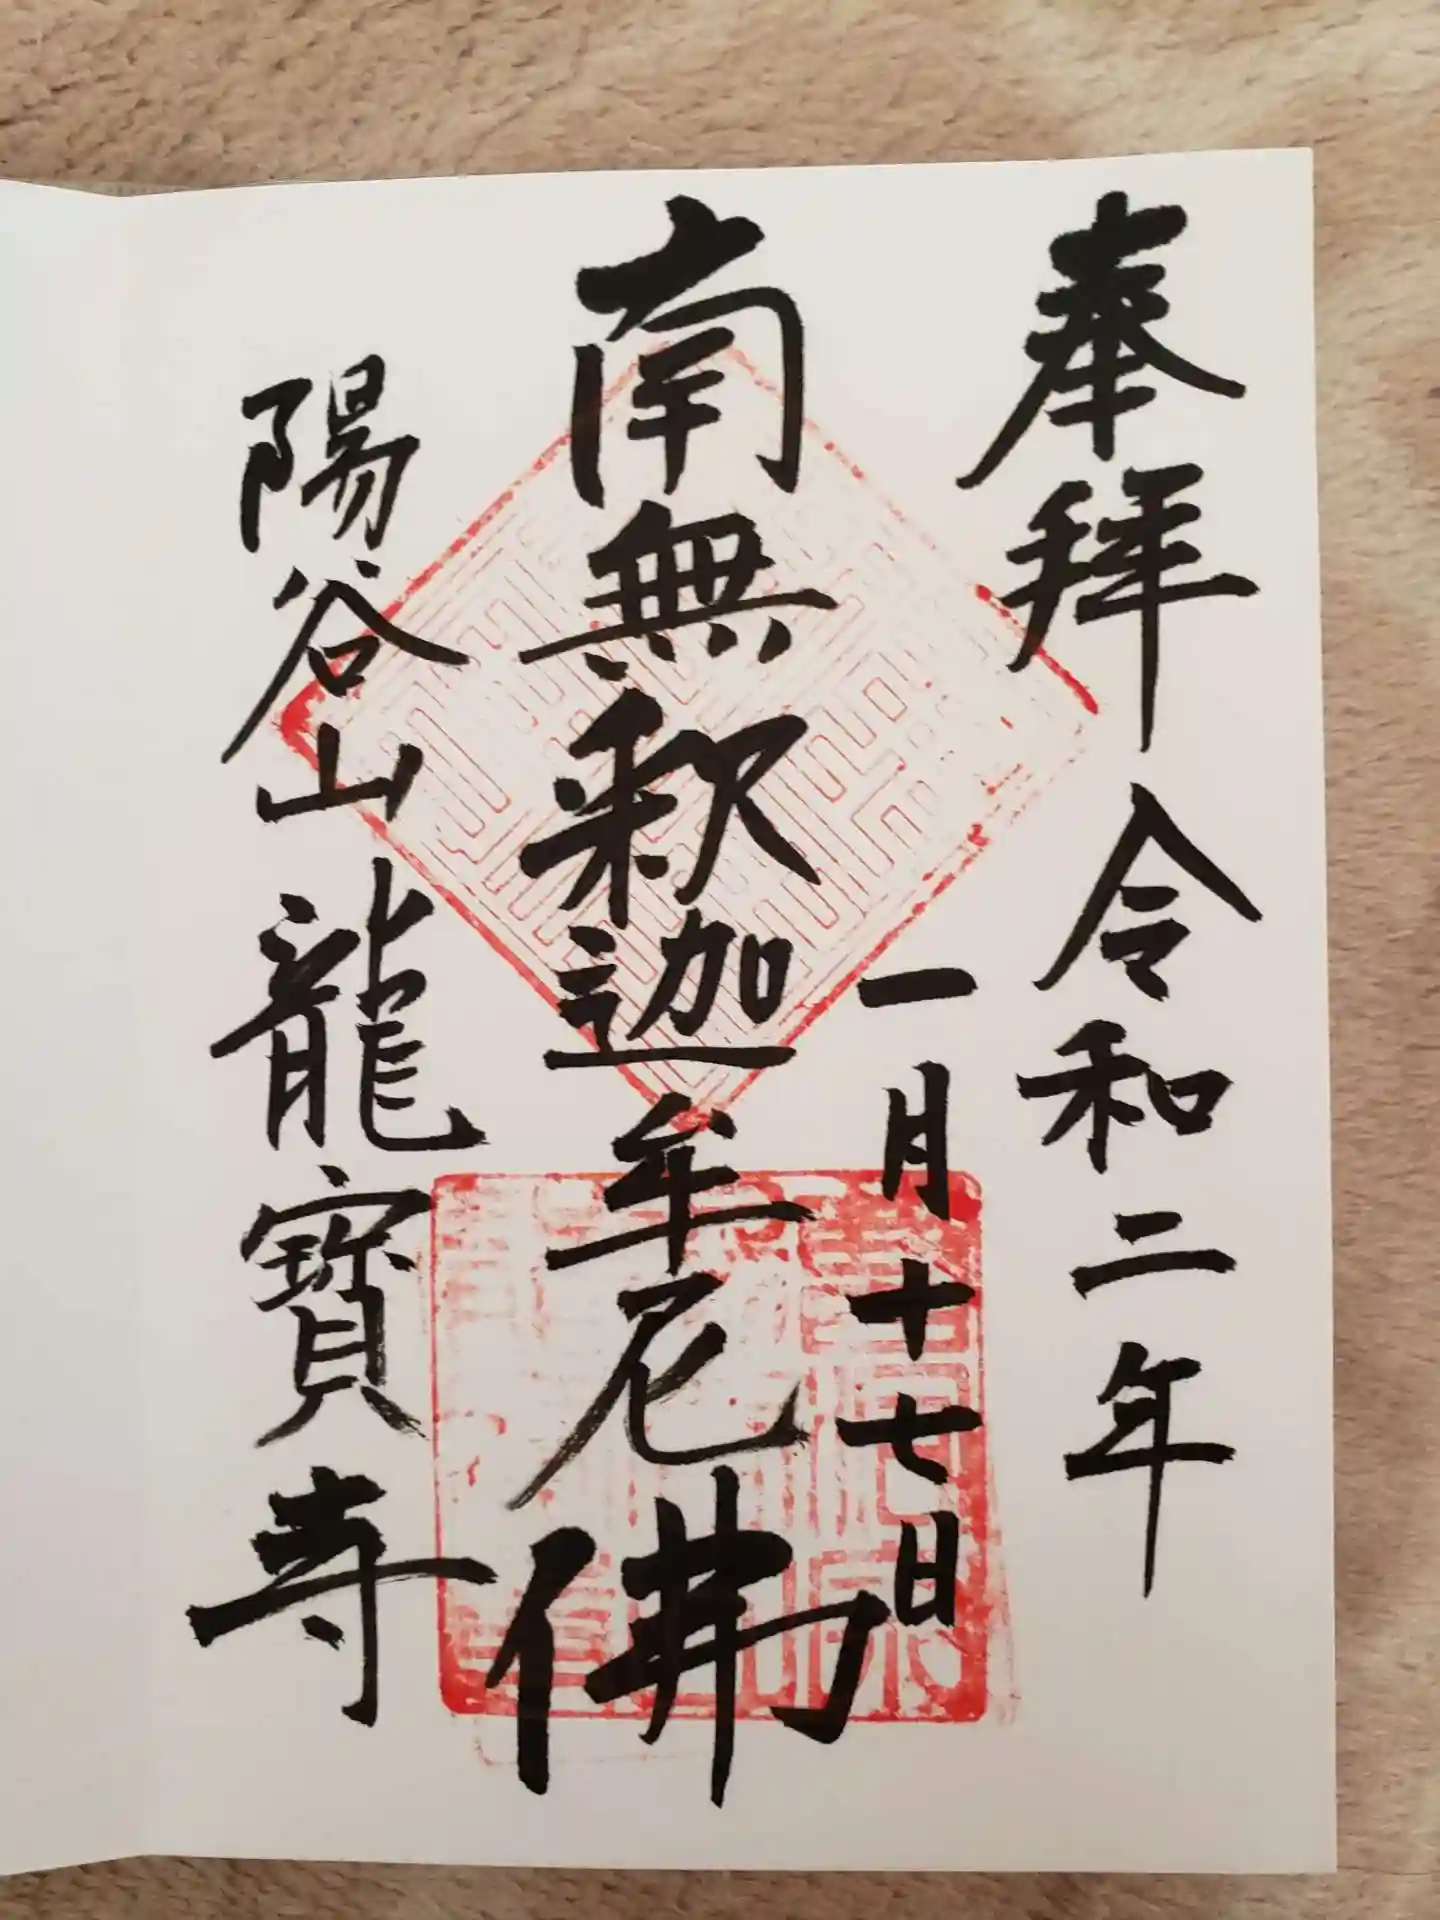 奉拜 令和二年
一月十七日
南無釈迦牟尼佛
陽谷山龍寶寺